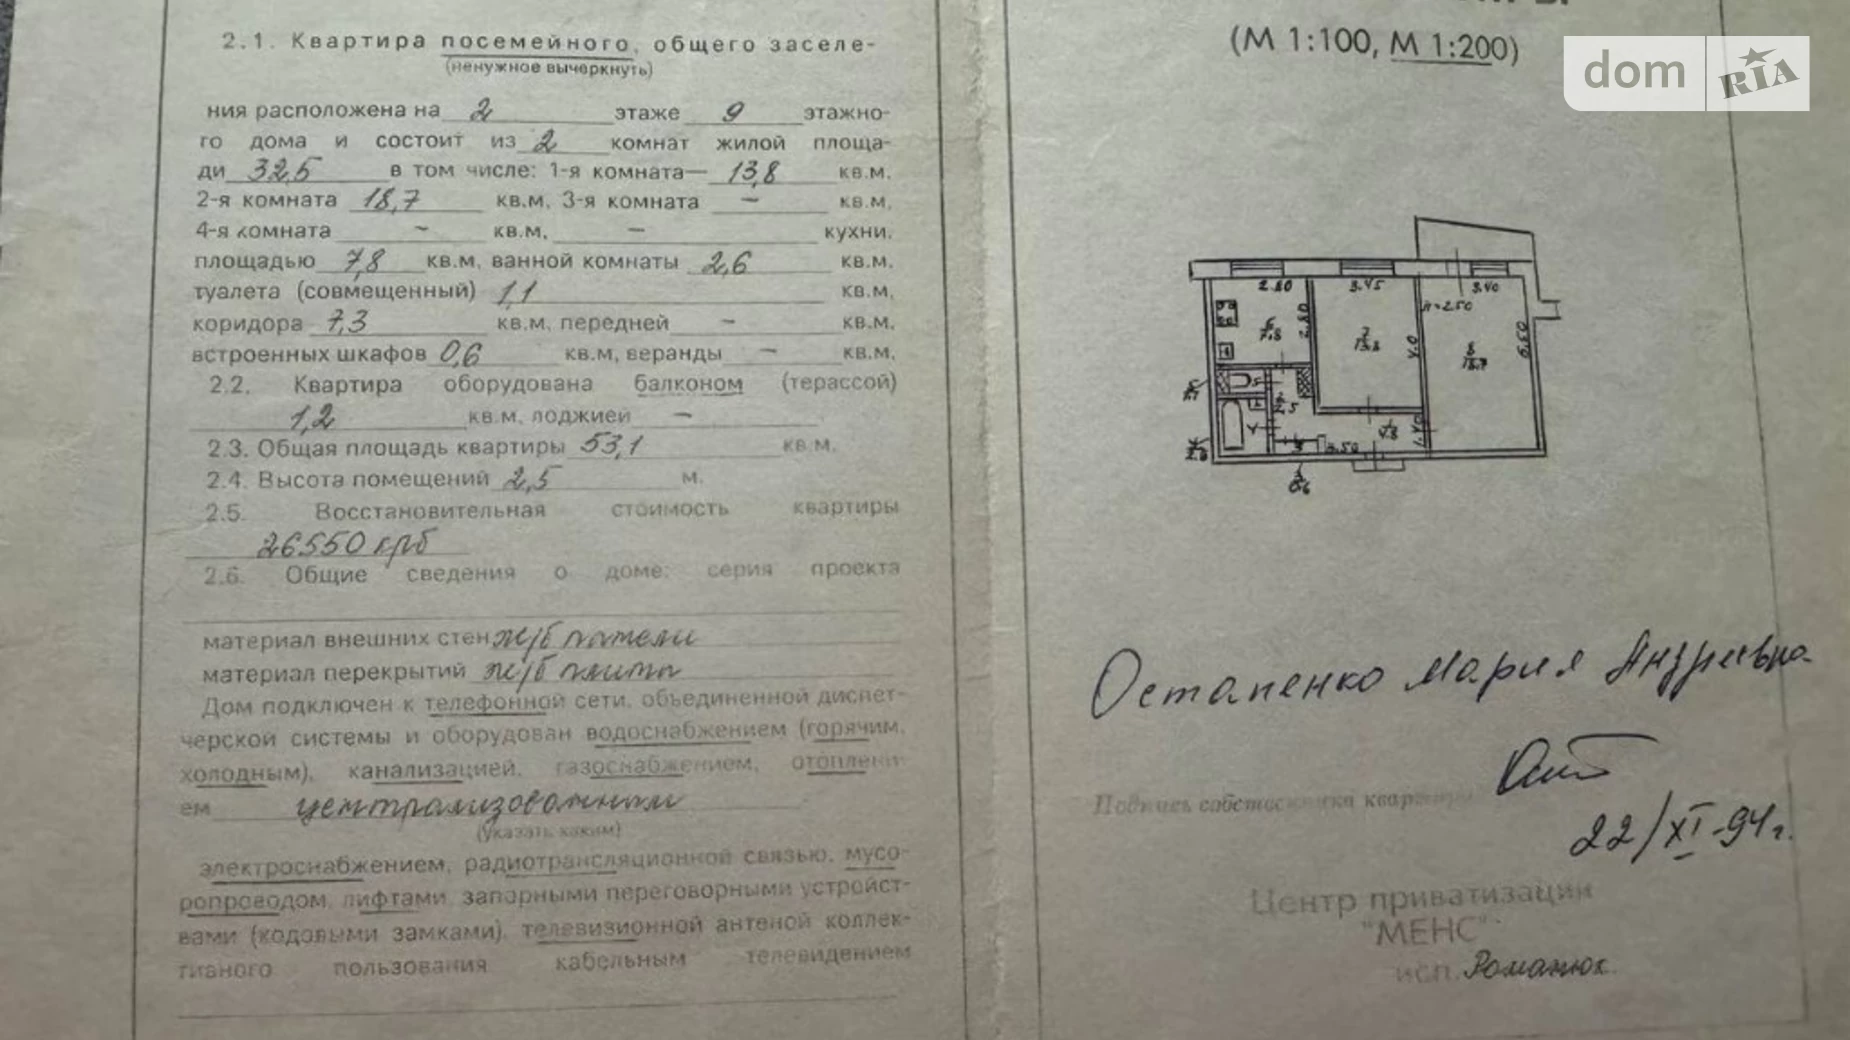 2.1. Квартира посемейного, общего заселе-
(ненужное вычеркнуть)
ния расположена на 2 этаже 9 этажно-
го дома и состоит из 2 комнат жилой площа-
ди 32,5 в том числе: 1-я комната— 13,8 кв.м.
2-я комната 18,7 кв.м, 3-я комната – кв.м.
4-я комната – кв.м, – кухни.
площадью 7,8 кв.м, ванной комнаты 2,6 кв.м.
туалета (совмещенный) 1,1 кв.м,
коридора 7,3 кв.м, передней – кв.м.
встроенных шкафов 0,6 кв.м, веранды – кв.м.
2.2. Квартира оборудована балконом (терассой)
1,2 кв.м, лоджией –
2.3. Общая площадь квартиры 53,1 кв.м.
2.4. Высота помещений 2,5 м.
2.5. Восстановительная стоимость квартиры
26550 крб
2.6. Общие сведения о доме: серия проекта
материал внешних стен ж/б панели
материал перекрытий ж/б плита
Дом подключен к телефонной сети, объединенной диспет-
черской системы и оборудован водоснабжением (горячим,
холодным), канализацией, газоснабжением, отоплени-
ем централизованным
(указать каким)
электроснабжением, радиотрансляционной связью, мусо-
ропроводом, лифтами, запорными переговорными устройст-
вами (кодовыми замками), телевизионной антеной коллек-
тивного пользования кабельным телевидением
(М 1:100, М 1:200)
dom RIA
2.80
3.45
3.40
h=2.50
6
7.8
2.80
2
13.8
4.0
8
18.7
5.50
2.5
4.8
1.40
3.50
0.6
Остапенко Мария Андреевна
Подпись собственника квартиры
22/XI-94г.
Центр приватизации
"МЕНС"
исп. Романюк